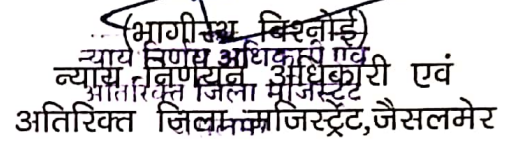 (भागीरथ बिश्नोई)
न्याय निर्णय अधिकारी एवं
न्याय निर्णयन अधिकारी एवं
अतिरिक्त जिला मजिस्ट्रेट
अतिरिक्त जिला मजिस्ट्रेट,जैसलमेर